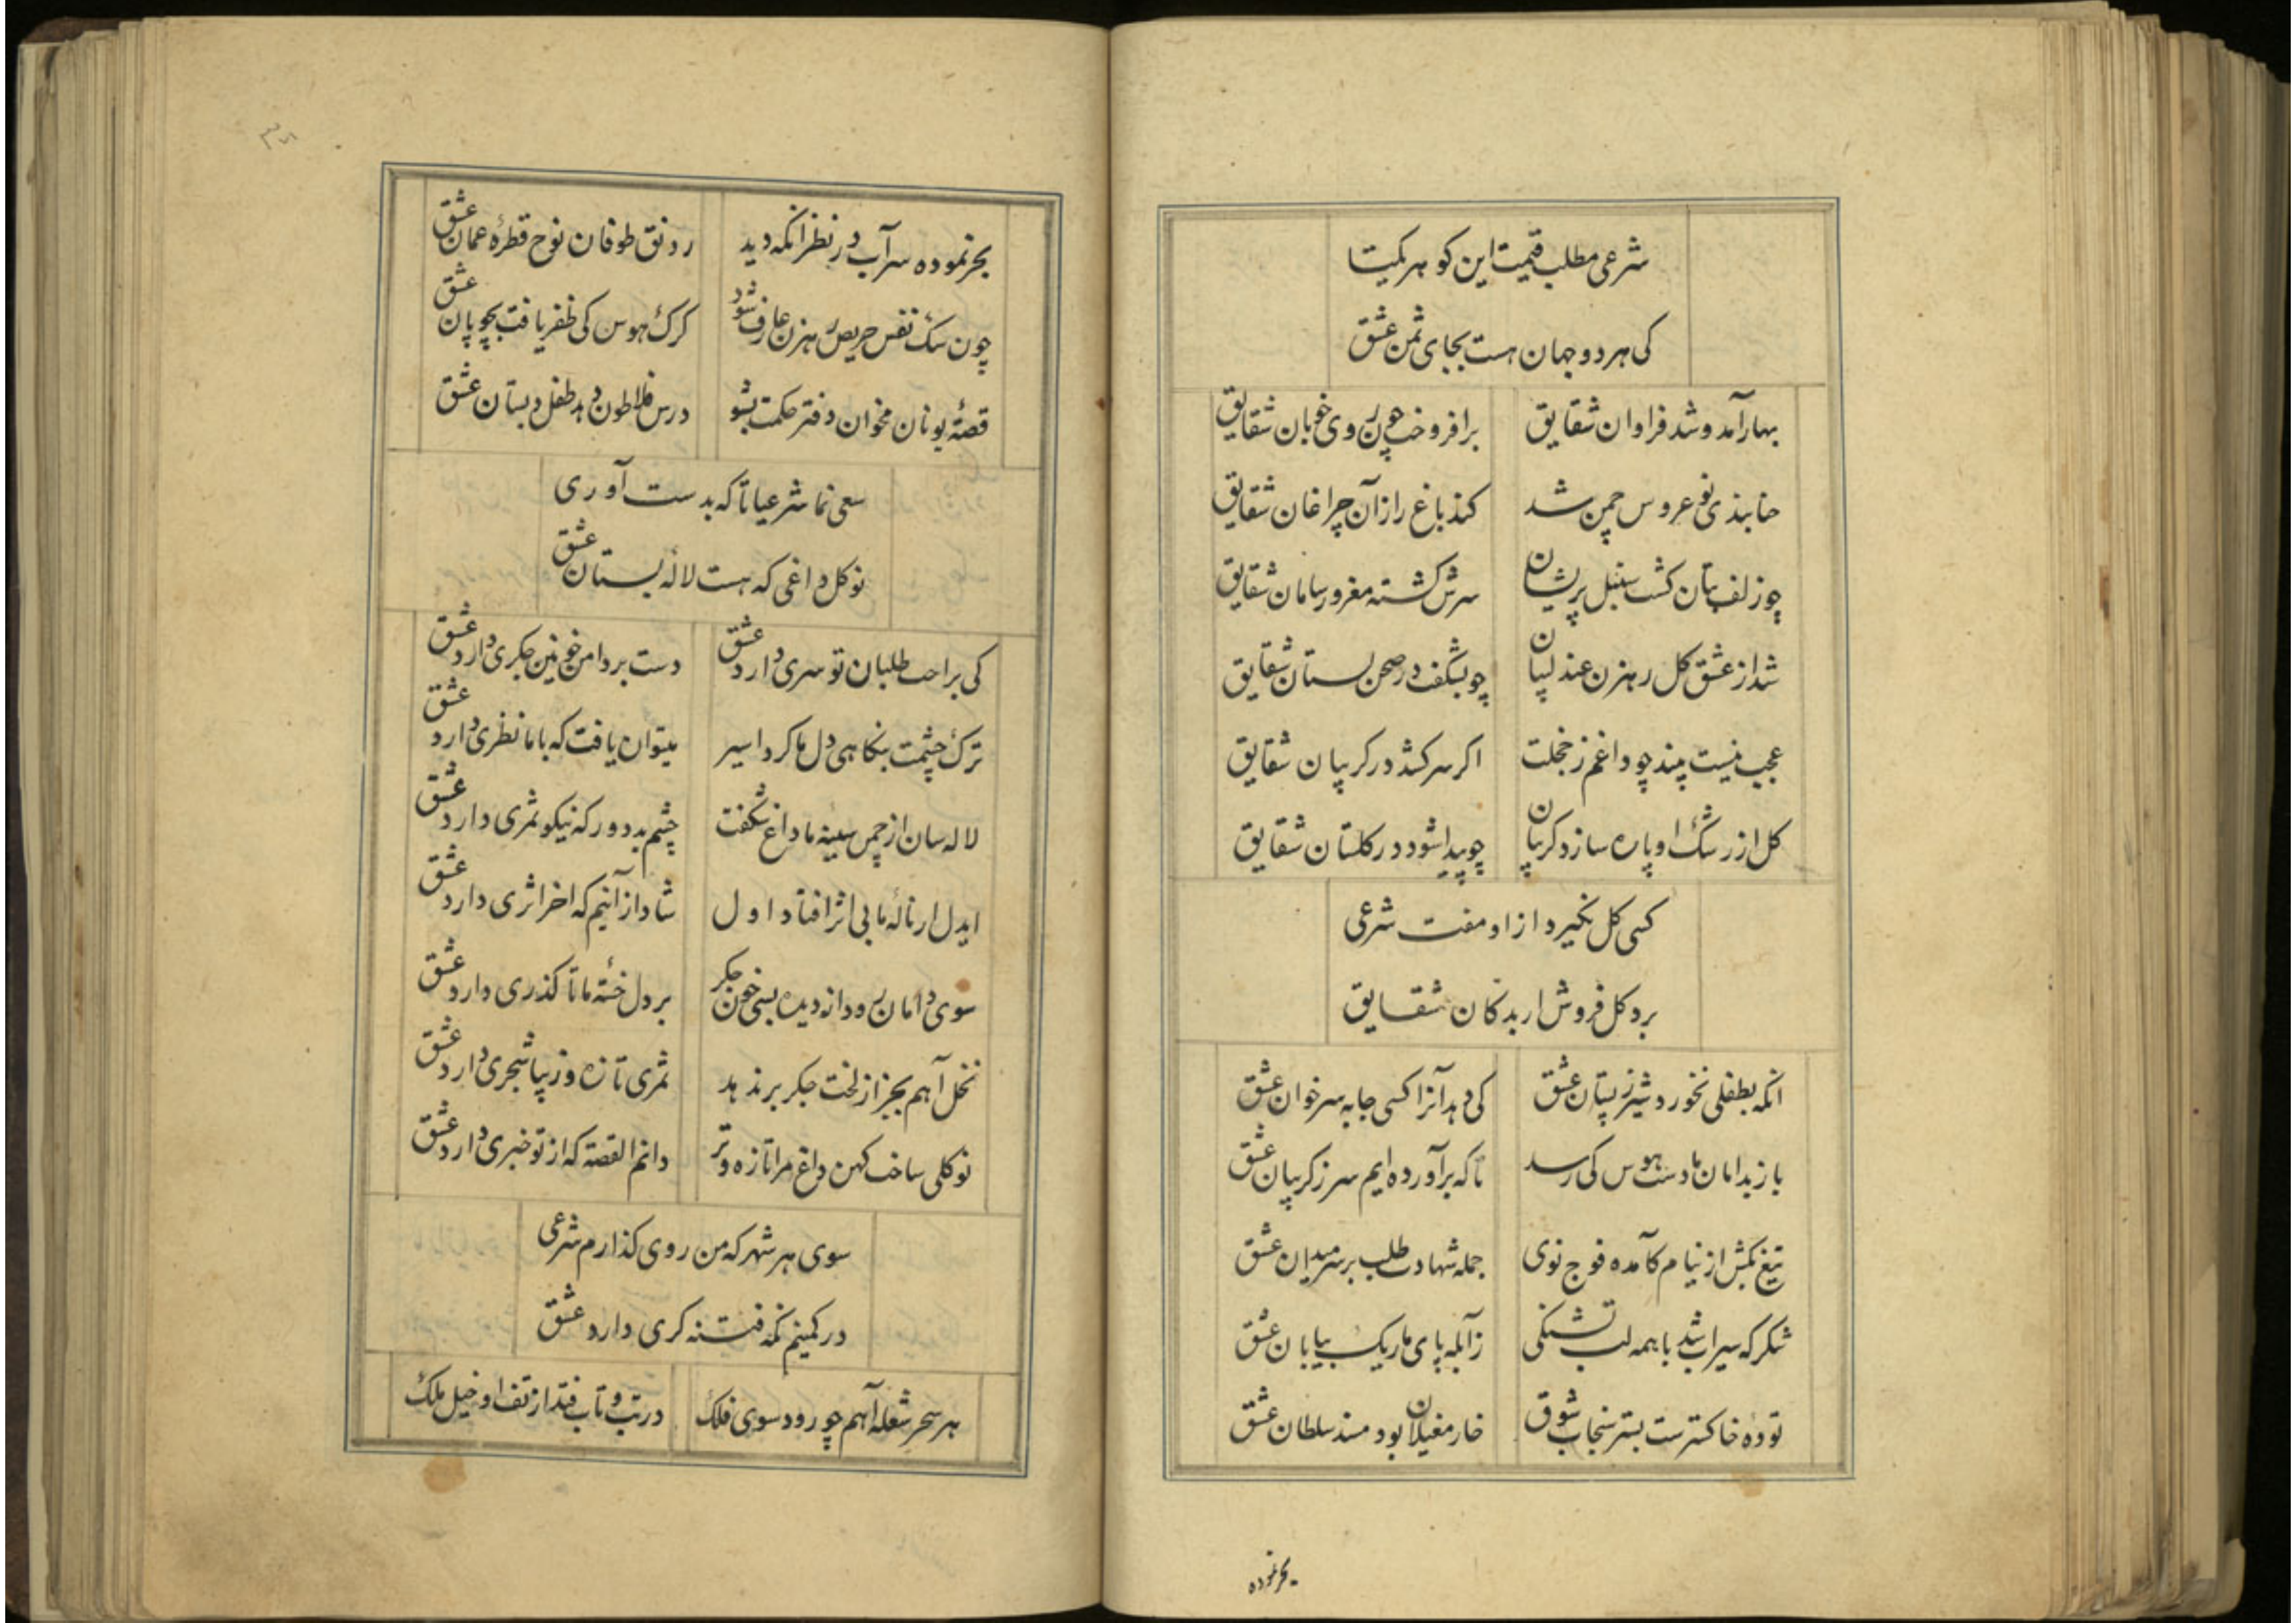 شرعی مطلب قیمت این کوهر یکیتا
کی هر دو جهان هست بجای ثمن عشق
بهار آمد و شد فراوان شقایق برافروخت چون روی خوبان شقایق
حنابندی نوعروس چمن شد کند باغ را زان چراغان شقایق
چو زلف بتان کشت سنبل پریشان سرش کشته مغرور سامان شقایق
شد از عشق کل رهزن عندلیبان چو بشکفت در صحن بستان شقایق
عجب نیست بیند چو داغم ز خجلت اکر سر کشد در کریبان شقایق
کل از رشک او پاره سازد کریبان چو پیدا شود در کلستان شقایق
کسی کل نکیرد ازاو مفت شرعی
برد کل فروش ار بدکان شقایق
انکه بطفلی نخورد شیر ز پستان عشق کی دهد آنرا کسی جا به سر خوان عشق
باز بدامان ما دست هوس کی رسد تا که برآورده ایم سر ز کریبان عشق
تیغ بکش از نیام کآمده فوج نوی جمله شهادت طلب بر سر میدان عشق
شکر که سیراب شد با همه لب تشنکی ز آبله پای ما ریک بیابان عشق
توده خاکسترست بستر سنجاب شوق خار مغیلان بود مسند سلطان عشق
بحر نموده
بحر نموده سرآب در نظر انکه دید رونق طوفان نوح قطرهٔ عمان عشق
چون سک نفس حریص رهزن عارف شود کرک هوس کی ظفر یافت بچوپان عشق
قصهٔ یونان مخوان دفتر حکمت بشو درس فلاطون دهد طفل دبستان عشق
سعی نما شرعیا تا که بدست آوری
نوکل داغی که هست لالهٔ بستان عشق
کی براحت طلبان تو سری دارد عشق دست بر دامن خونین جکری دارد عشق
ترک چشمت بنکاهی دل ما کرد اسیر میتوان یافت که با ما نظری دارد عشق
لاله سان از چمن سینه ما داغ شکفت چشم بد دور که نیکو ثمری دارد عشق
ایدل ار نالهٔ ما بی اثر افتاد اول شاد از آنیم که اخر اثری دارد عشق
سوی دامان رود از دیده بسی خون جکر بر دل خستهٔ ما تا کذری دارد عشق
نخل آهم بجز از لخت جکر بر ندهد ثمری تازه و زیبا شجری دارد عشق
نوکلی ساخت کهن داغ مرا تازه و تر دانم القصه که از تو خبری دارد عشق
سوی هر شهر که من روی کذارم شرعی
در کمینم نکه فتنه کری دارد عشق
هر سحر شعله آهم چو رود سوی فلک در تب و تاب فتد از تف او خیل ملک